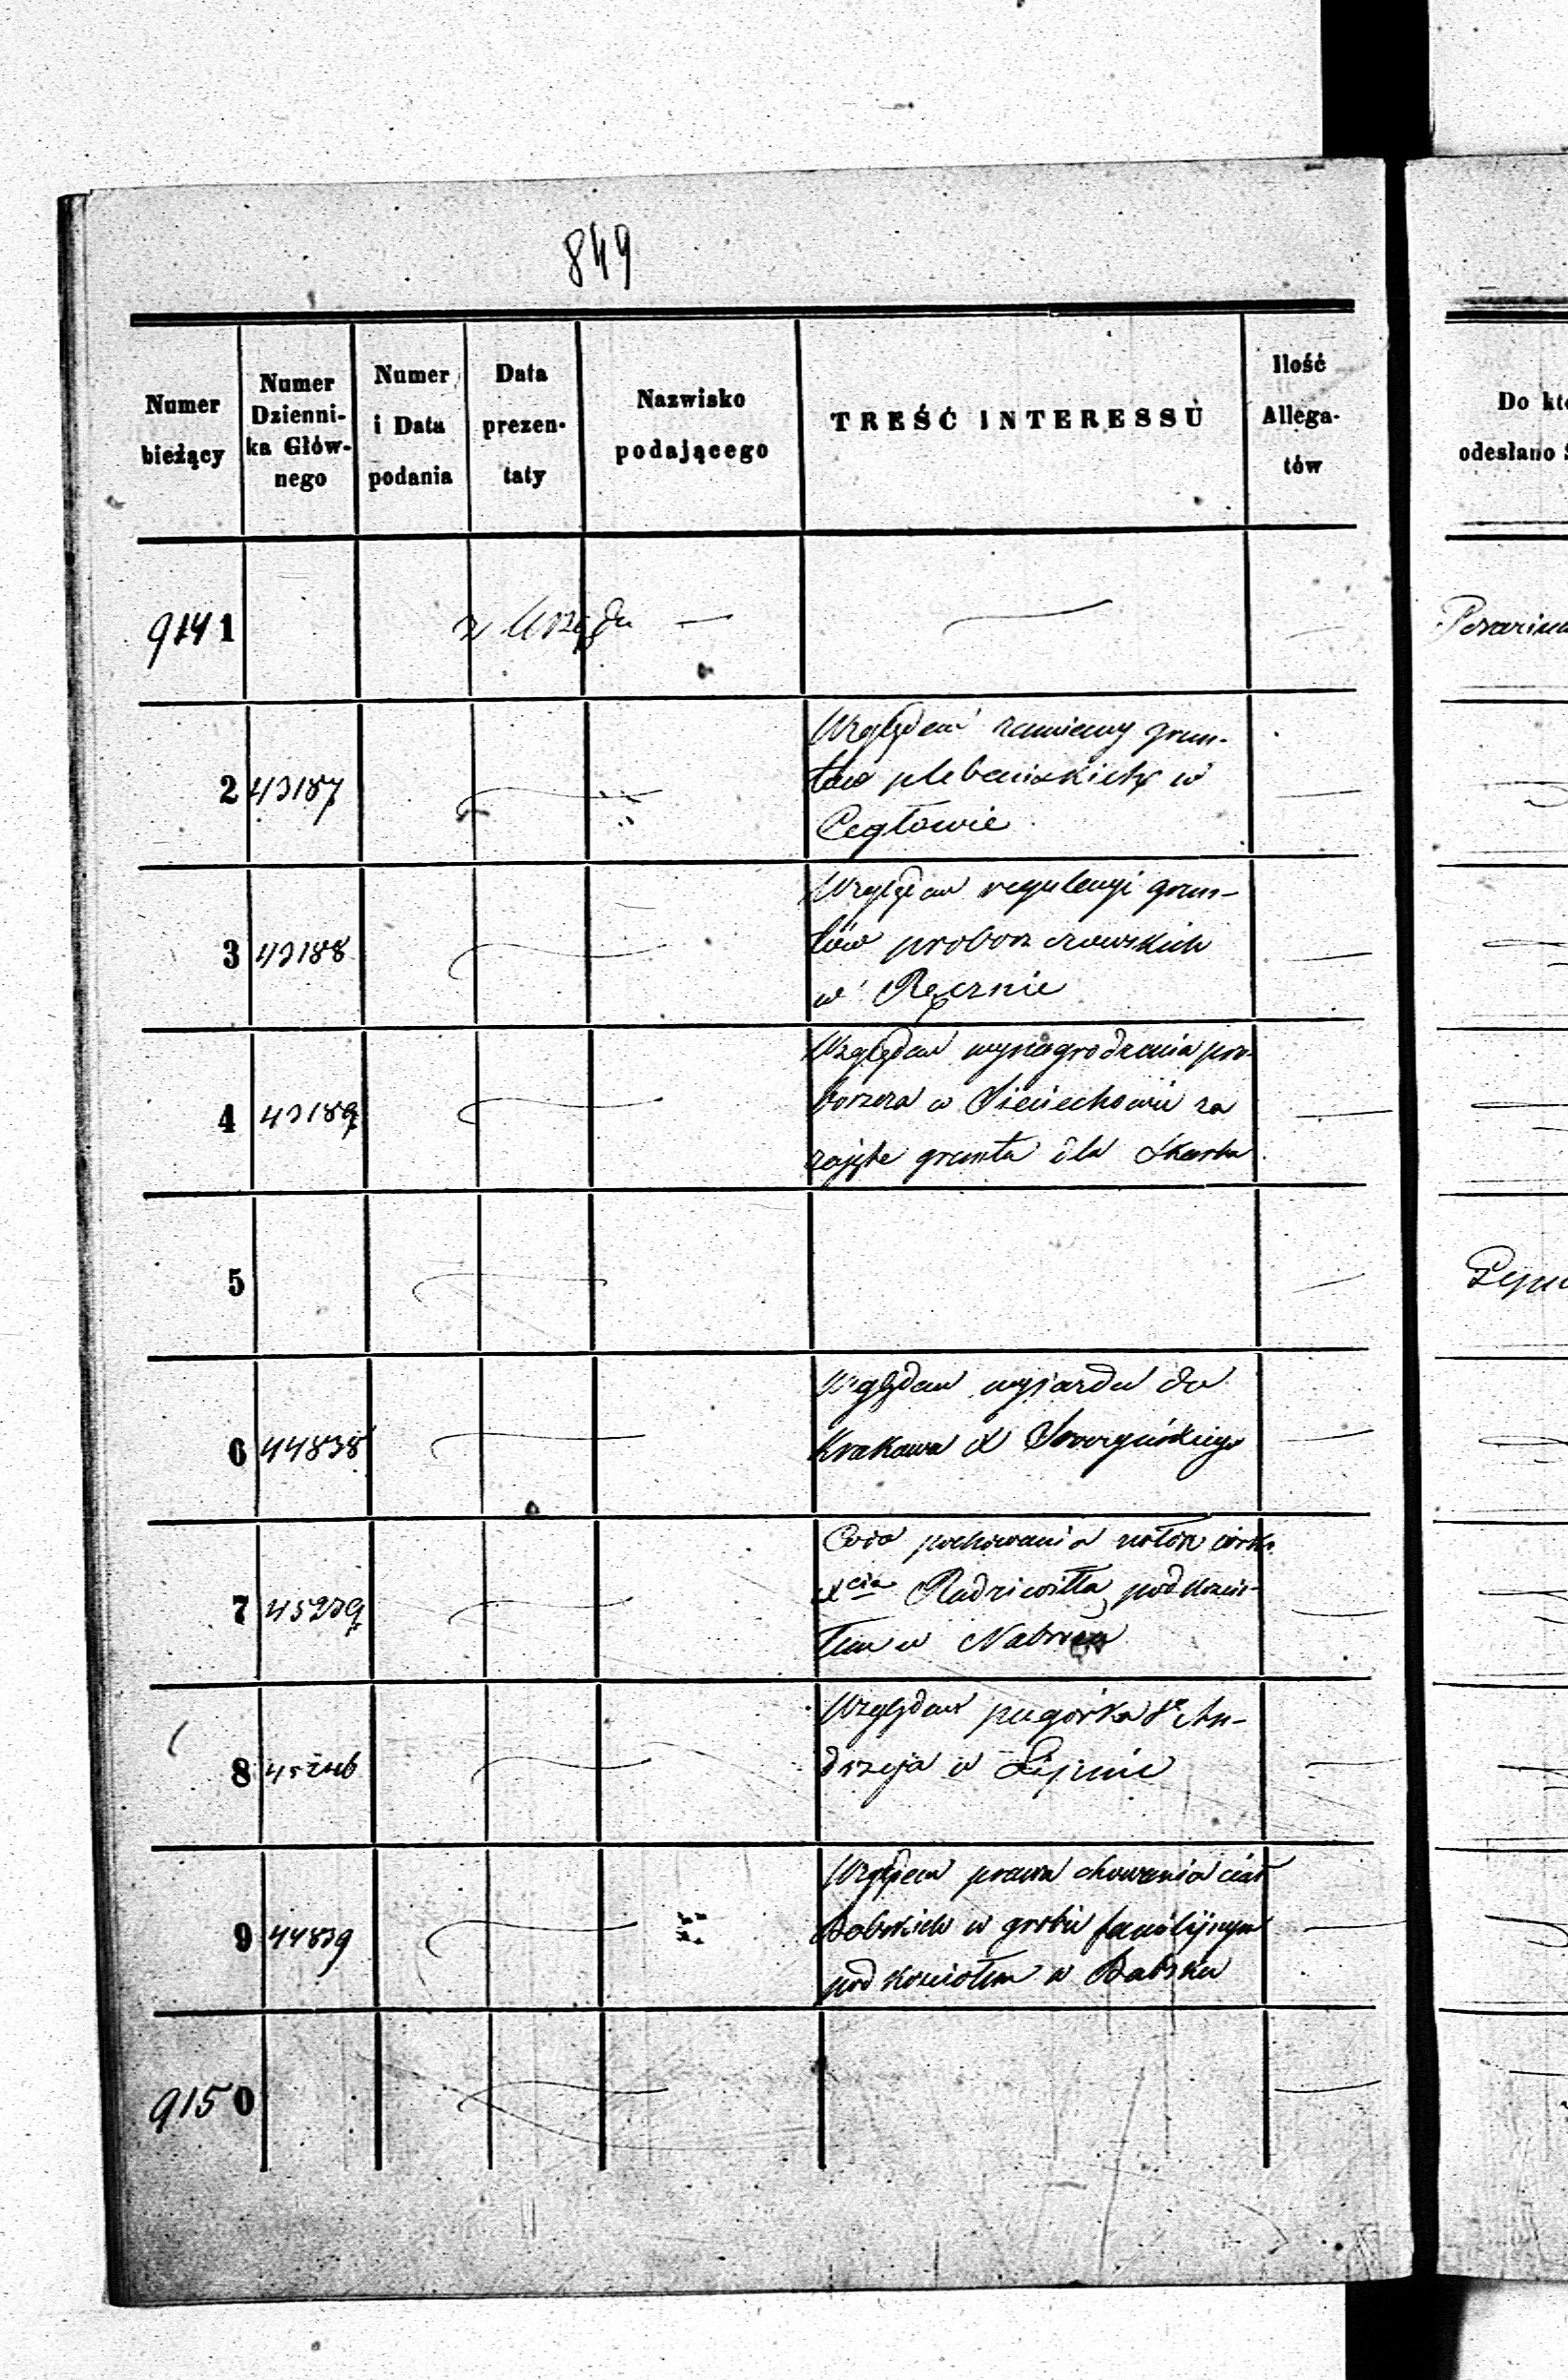 849
Numer bieżący
Numer Dzienni-
ka Głów-
nego
Numer i Data podania
Data prezen-
taty
Nazwisko podającego
TREŚĆ INTERESSU
Ilość Allega-
tów
Do
odesłano
9141 z Urzędu —
2 43187
Względem zamiany grun-
tów plebańskich w
Cegłowie
3 43188
Względem regulacyi grun-
tów proboszczowskich
w Ręcznie
4 43189
Względem wynagrodzenia pro-
boszcza w Sieciechowie za
zajęte grunta dla Skarbu
5
6 44838
Względem wyjazdu do
Krakowa X
7 45239
Co do pochowania zwłok córki
Xcia Radziwiłła pod kościo-
łem w
8 45246
Względem pagórka Sgo An-
drzeja w Lipnie
9 44839
Względem prawa chowania ciał
w grobie familijnym
pod kościołem w Babsku
9150